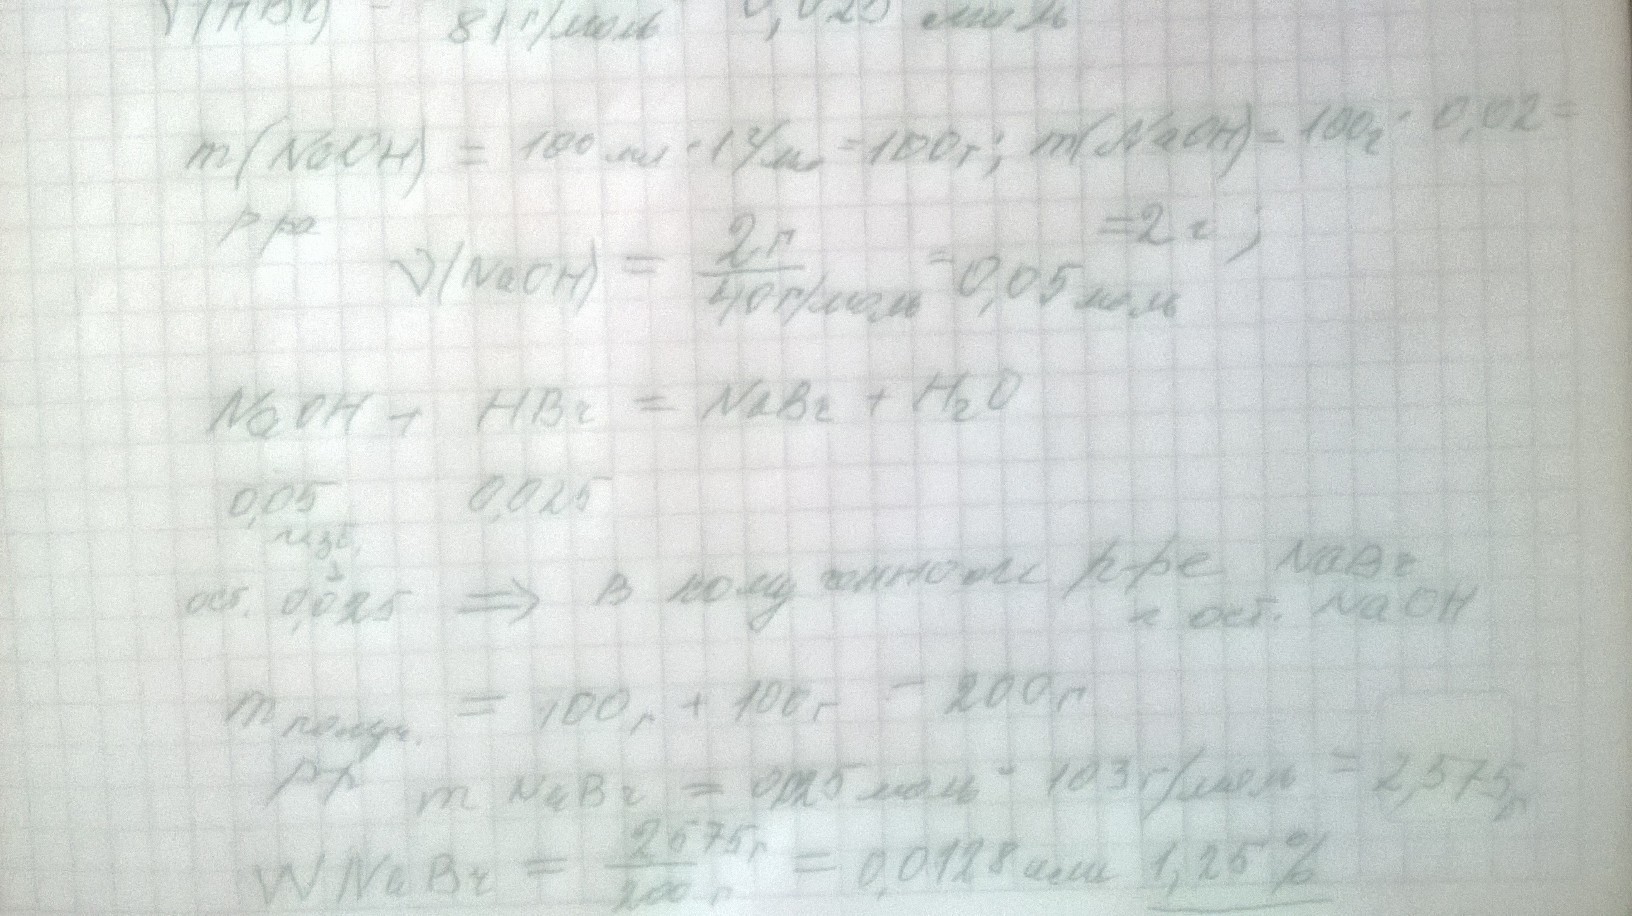 ν(HBr) = 81 г/моль 0,025 моль
m(NaOH) = 100 мл · 1 г/мл = 100 г; m(NaOH) = 100 г · 0,02 =
р-ра = 2 г;
ν(NaOH) = 2 г / 40 г/моль = 0,05 моль
NaOH + HBr = NaBr + H₂O
0,05 0,025
изб.
ост. 0,025 ⇒ в полученном р-ре NaBr
и ост. NaOH
m получ. = 100 г + 100 г = 200 г
р-р m NaBr = 0,025 моль · 103 г/моль = 2,575 г
W NaBr = 2,575 г / 200 г = 0,0128 или 1,25 %